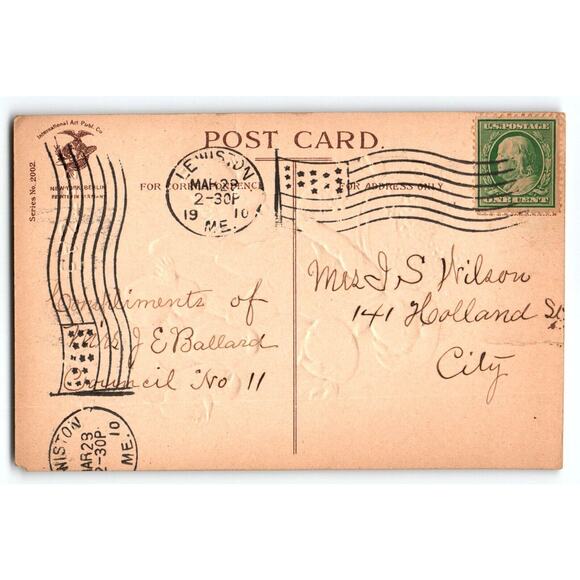 International Art Publ. Co
NEW-YORK-BERLIN
PRINTED IN GERMANY
Series No. 2002.
POST CARD.
FOR CORRESPONDENCE
FOR ADDRESS ONLY
LEWISTON
MAR 28
2-30P
19 10
ME.
U.S. POSTAGE
ONE CENT
Compliments of
Mrs J E Ballard
Council No 11
Mrs J S Wilson
141 Holland St
City
WISTON
MAR 28
2-30P
10
ME.